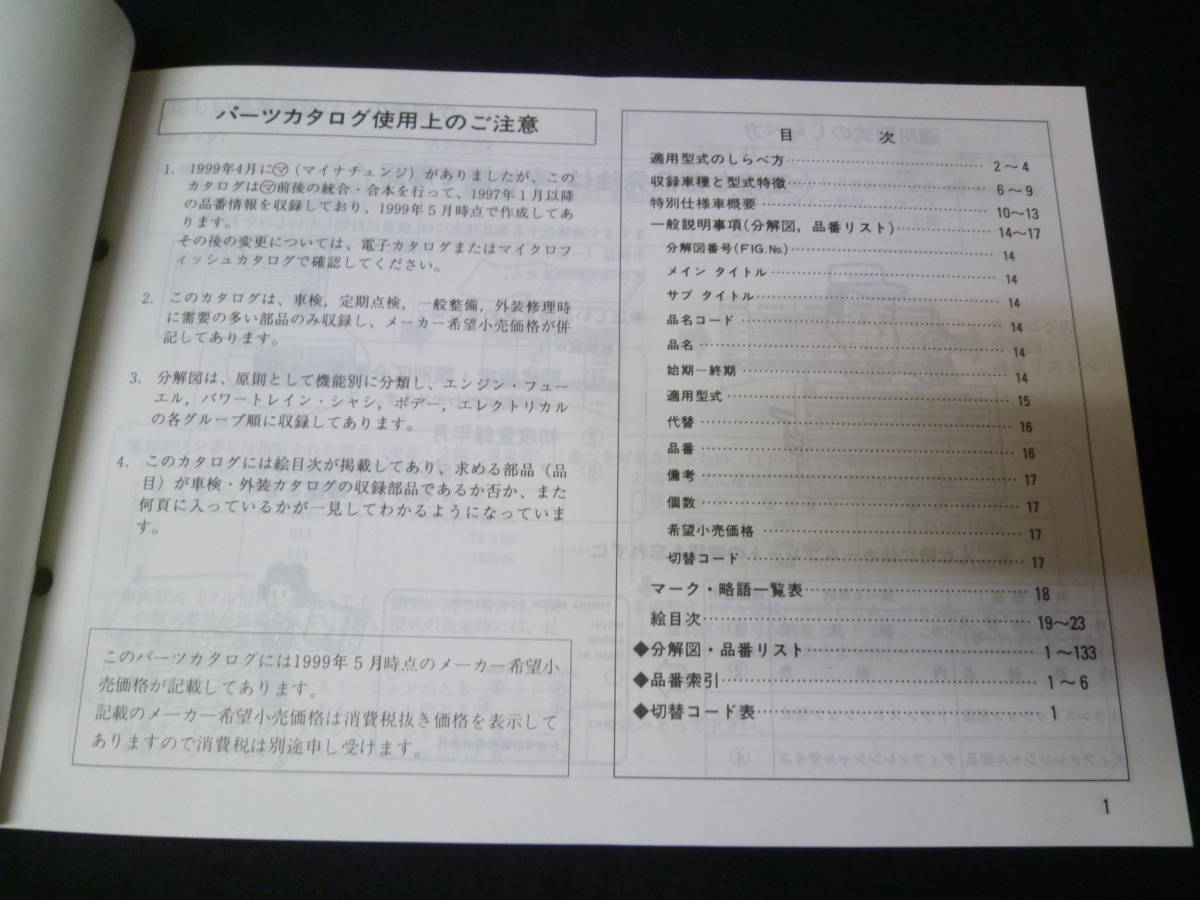 パーツカタログ使用上のご注意
1. 1999年4月に㋮(マイナチェンジ)がありましたが、この
カタログは㋮前後の統合・合本を行って、1997年1月以降
の品番情報を収録しており、1999年5月時点で作成してあ
ります。
その後の変更については、電子カタログまたはマイクロフ
ィッシュカタログで確認してください。
2. このカタログは、車検，定期点検，一般整備，外装修理時
に需要の多い部品のみ収録し、メーカー希望小売価格が併
記してあります。
3. 分解図は、原則として機能別に分類し、エンジン・フュー
エル，パワートレイン・シャシ，ボデー，エレクトリカル
の各グループ順に収録してあります。
4. このカタログには絵目次が掲載してあり、求める部品（品
目）が車検・外装カタログの収録部品であるか否か、また
何頁に入っているかが一見してわかるようになっていま
す。
このパーツカタログには1999年5月時点のメーカー希望小
売価格が記載してあります。
記載のメーカー希望小売価格は消費税抜き価格を表示して
ありますので消費税は別途申し受けます。
目 次
適用型式のしらべ方 2～4
収録車種と型式特徴 6～9
特別仕様車概要 10～13
一般説明事項(分解図，品番リスト) 14～17
分解図番号(FIG.No.) 14
メイン タイトル 14
サブ タイトル 14
品名コード 14
品名 14
始期－終期 14
適用型式 15
代替 16
品番 16
備考 17
個数 17
希望小売価格 17
切替コード 17
マーク・略語一覧表 18
絵目次 19～23
◆分解図・品番リスト 1～133
◆品番索引 1～6
◆切替コード表 1
1